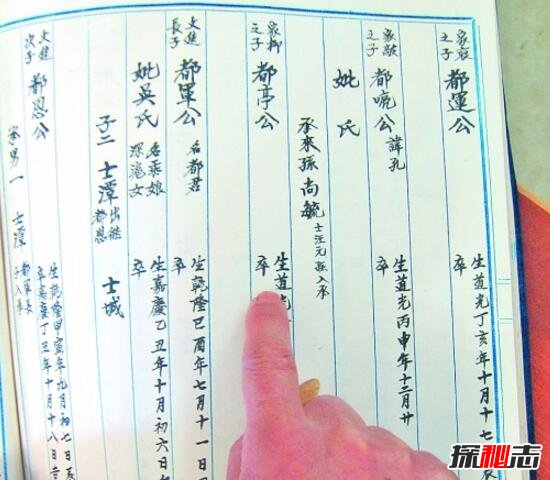 家駁之子
都運公
生道光丁亥年十月十七
卒
家駿之子
都唲公 諱孔
生道光丙申年十二月廿
卒
妣氏
承來孫尚毓 士汪元孫入承
家柳之子
都亭公
生道光
卒
文進長子
都軍公 名都君
生乾隆己酉年七月十一日
卒
妣吳氏 名乘娘 深滝女
生嘉慶乙丑年十月初六日
卒
子二 士潭 出繼都恩 士城
文進次子
都恩公
生乾隆甲寅年九月初七日辰
卒嘉慶丁丑年十月十八日
承男一 士潭 都軍長子入承
探秘志